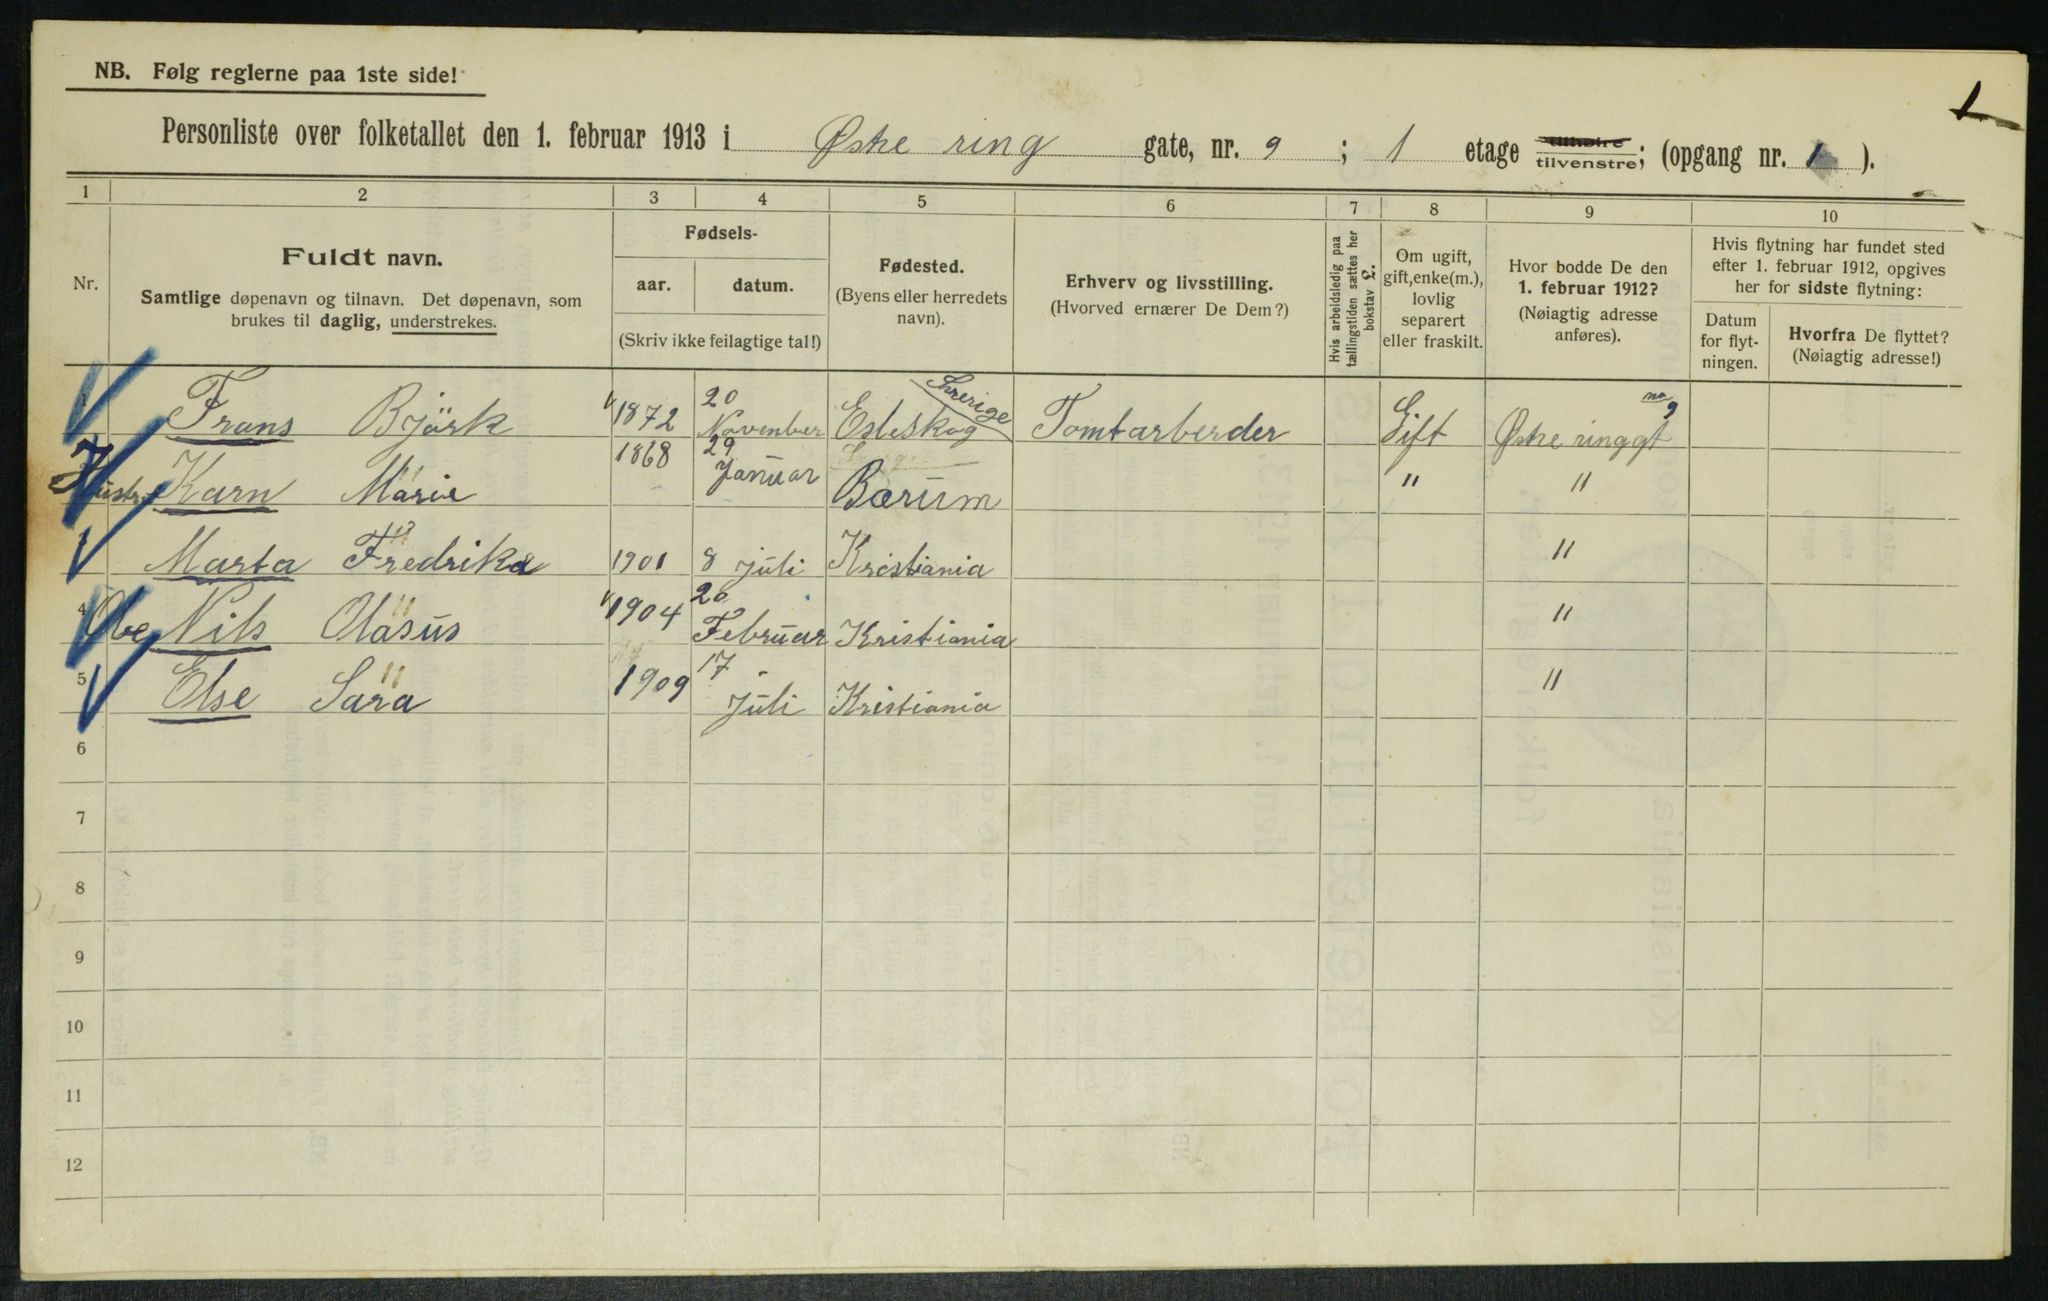 NB. Følg reglerne paa 1ste side!
1
Personliste over folketallet den 1. februar 1913 i Østre ring gate, nr. 9 ; 1 etage tilhøire tilvenstre; (opgang nr. 1 ).
1 2 3 4 5 6 7 8 9 10
Nr.
Fuldt navn.
Samtlige døpenavn og tilnavn. Det døpenavn, som
brukes til daglig, understrekes.
Fødsels-
aar. datum.
(Skriv ikke feilagtige tal!)
Fødested.
(Byens eller herredets
navn).
Erhverv og livsstilling.
(Hvorved ernærer De Dem?)
Hvis arbeidsledig paa
tællingstiden sættes her
bokstav L.
Om ugift,
gift, enke(m.),
lovlig
separert
eller fraskilt.
Hvor bodde De den
1. februar 1912?
(Nøiagtig adresse
anføres).
Hvis flytning har fundet sted
efter 1. februar 1912, opgives
her for sidste flytning:
Datum
for flyt-
ningen.
Hvorfra De flyttet?
(Nøiagtig adresse!)
Frans Björk 1872 20 November Esleskog Sverige Tomtarberder Gift Østre ringgt no 9
Hustr. Karn Marie 1868 29 Januar Bærum " "
Marta Fredrika 1901 8 Juli Kristiania "
4 Nils Olasus 1904 20 Februar Kristiania "
5 Else Sara 1909 17 Juli Kristiania "
6
7
8
9
10
11
12